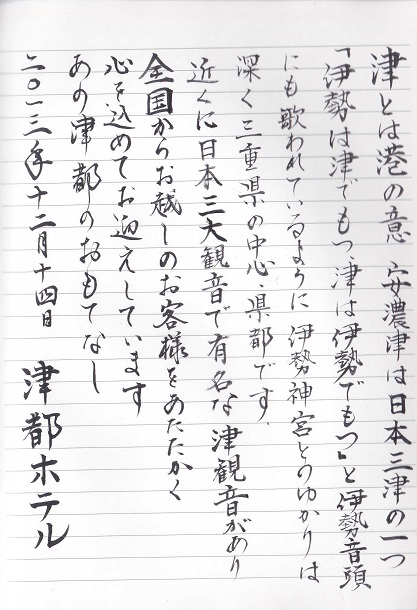 津とは港の意 安濃津は日本三津の一つ
「伊勢は津でもつ、津は伊勢でもつ」と伊勢音頭
にも歌われているように 伊勢神宮とのゆかりは
深く三重県の中心、県都です。
近くに日本三大観音で有名な津観音があり
全国からお越しのお客様をあたたかく
心を込めてお迎えしています
あの津都のおもてなし
二〇一三年十二月十四日 津都ホテル